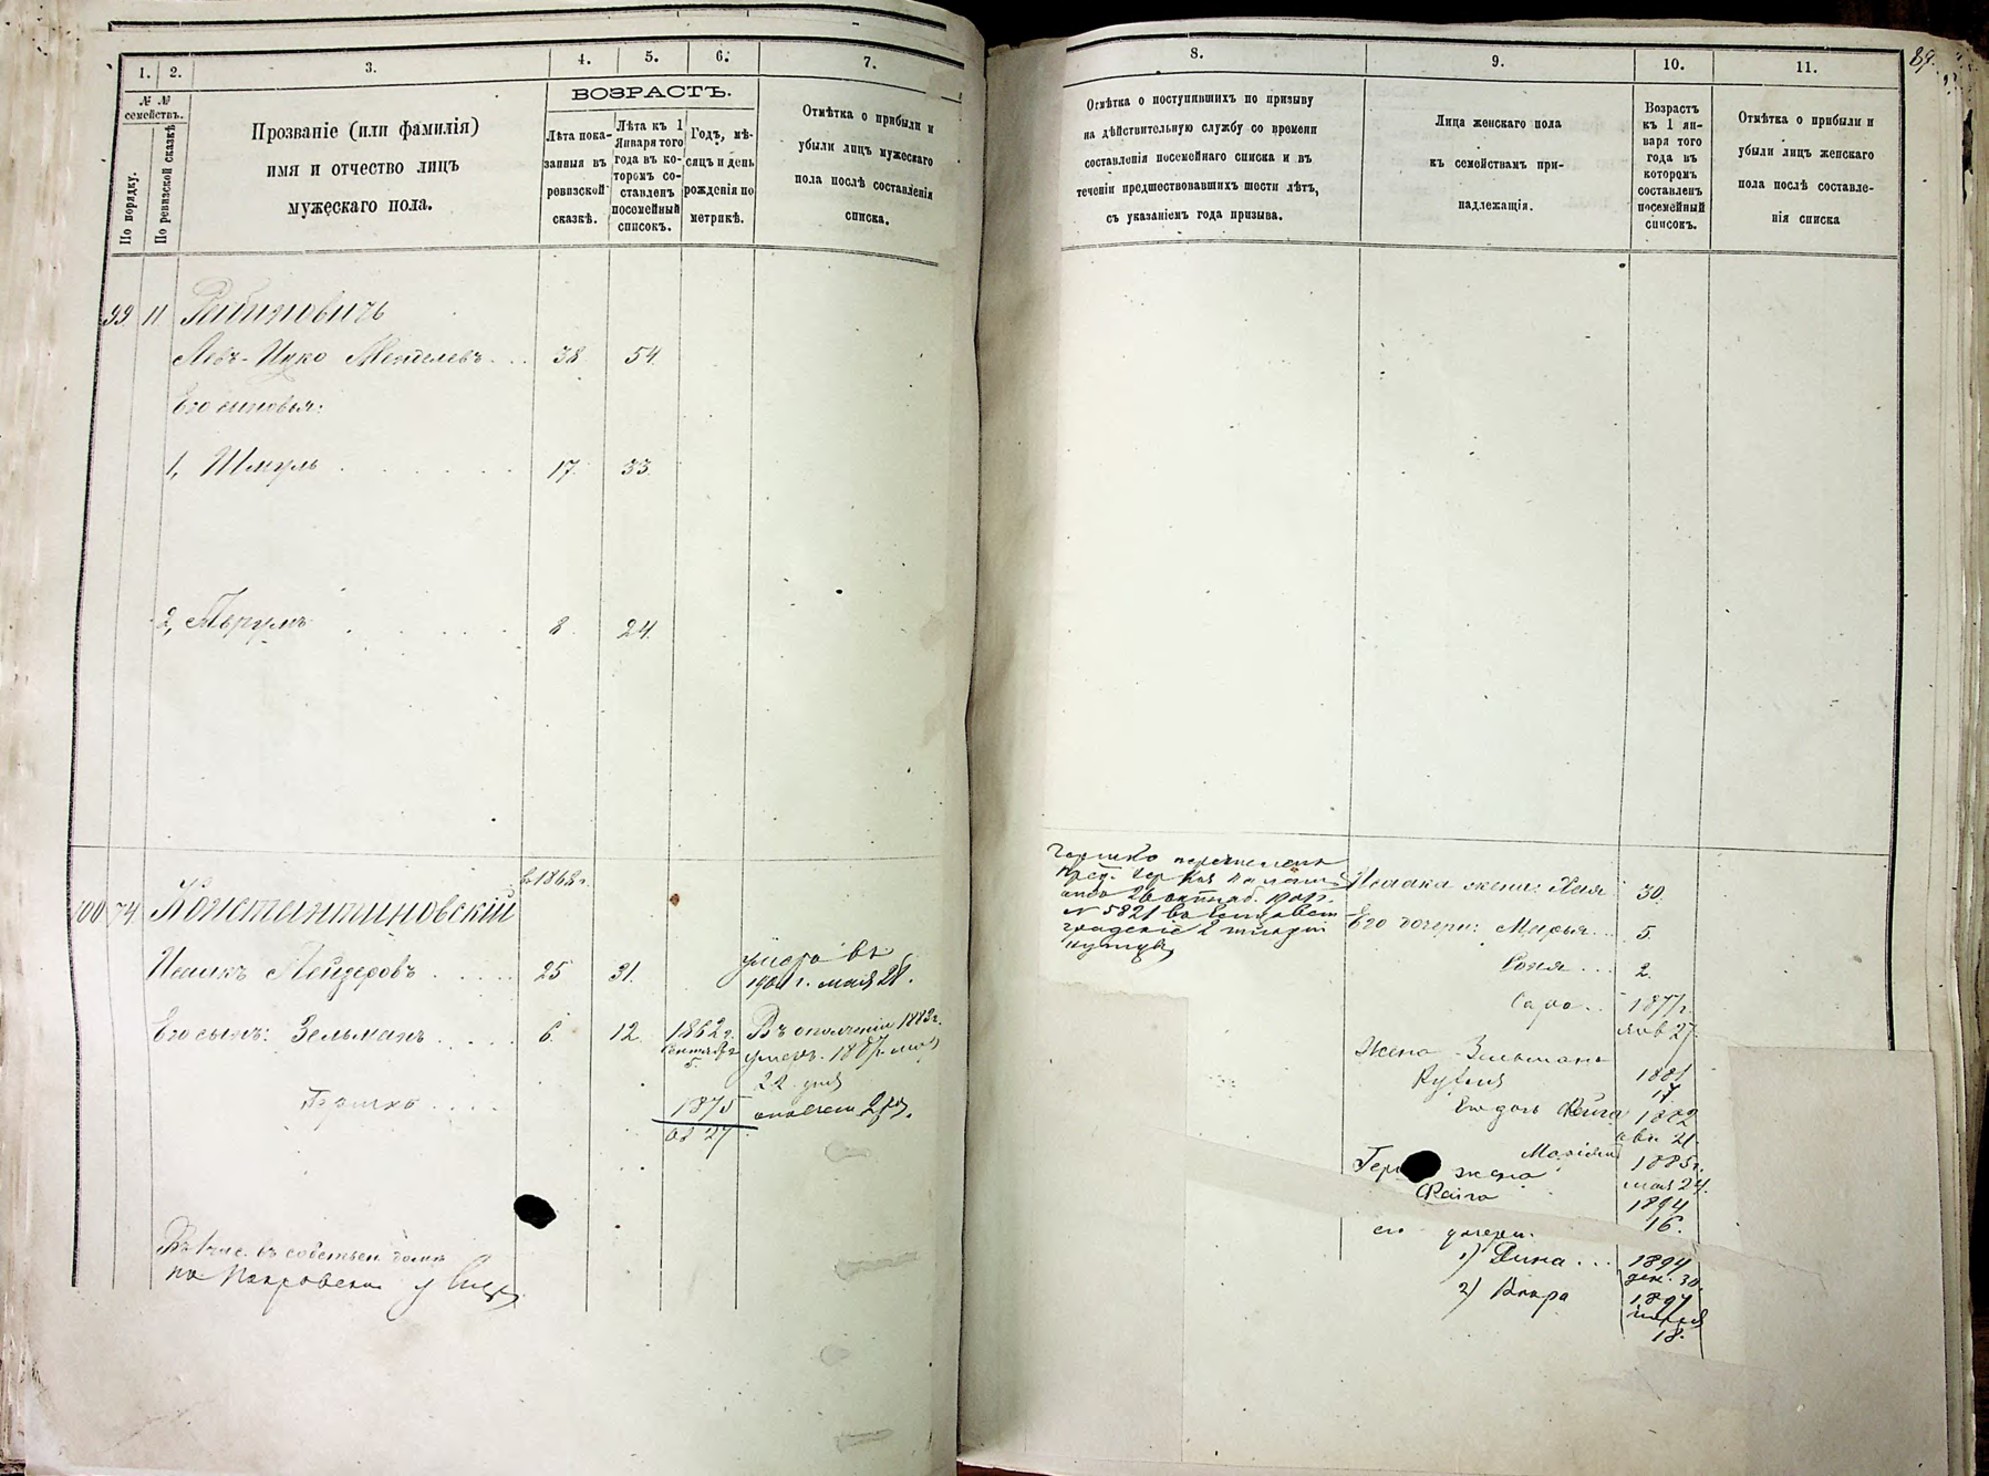 1. 2. 3. 4. 5. 6. 7.
№ № семействъ.
По порядку.
По ревизской сказкѣ
Прозваніе (или фамилія)
имя и отчество лицъ
мужескаго пола.
ВОЗРАСТЪ.
Лѣта пока-
занныя въ
ревизской
сказкѣ.
Лѣта къ 1
Января того
года въ ко-
торомъ со-
ставленъ
посемейный
списокъ.
Годъ, мѣ-
сяцъ и день
рожденія по
метрикѣ.
Отмѣтка о прибыли и
убыли лицъ мужескаго
пола послѣ составленія
списка.
99 11 Рабиновичъ
Левъ-Ицко Менделевъ 38 54
Его сыновья:
1, Шмуль 17 33
2, 8 24
въ 1868 г.
100 74 Константиновскій
Исаакъ Лейзеровъ 25 31. умеръ въ
190 г. мая 28.
Его сынъ: Зельманъ 6. 12. 1862 г. Въ ополченіи 1883 г.
Сентября умеръ 1887 мая
5. 22 дня
Гершко 1875
27
въ собствен. домѣ
на Покровской у
8. 9. 10. 11.
89.
Отмѣтка о поступившихъ по призыву
на дѣйствительную службу со времени
составленія посемейнаго списка и въ
теченіи предшествовавшихъ шести лѣтъ,
съ указаніемъ года призыва.
Лица женскаго пола
къ семействамъ при-
надлежащія.
Возрастъ
къ 1 ян-
варя того
года въ
которомъ
составленъ
посемейный
списокъ.
Отмѣтка о прибыли и
убыли лицъ женскаго
пола послѣ составле-
нія списка
Гершко перечисленъ
№ 5821 въ Елисавет
градскіе 2 гильдіи
купцы
Исаака жена: Хая 30.
Его дочери: Марья 5.
Соня 2.
Сара 1877 г.
янв 27.
Жена Зельмана
1881
17
Его дочь 1882
авг. 21.
1885 г.
мая 24.
Гер жена
Раиса 1894
16.
его дочери.
1) Дина 1894
дек. 30
2) Клара 1897
18.